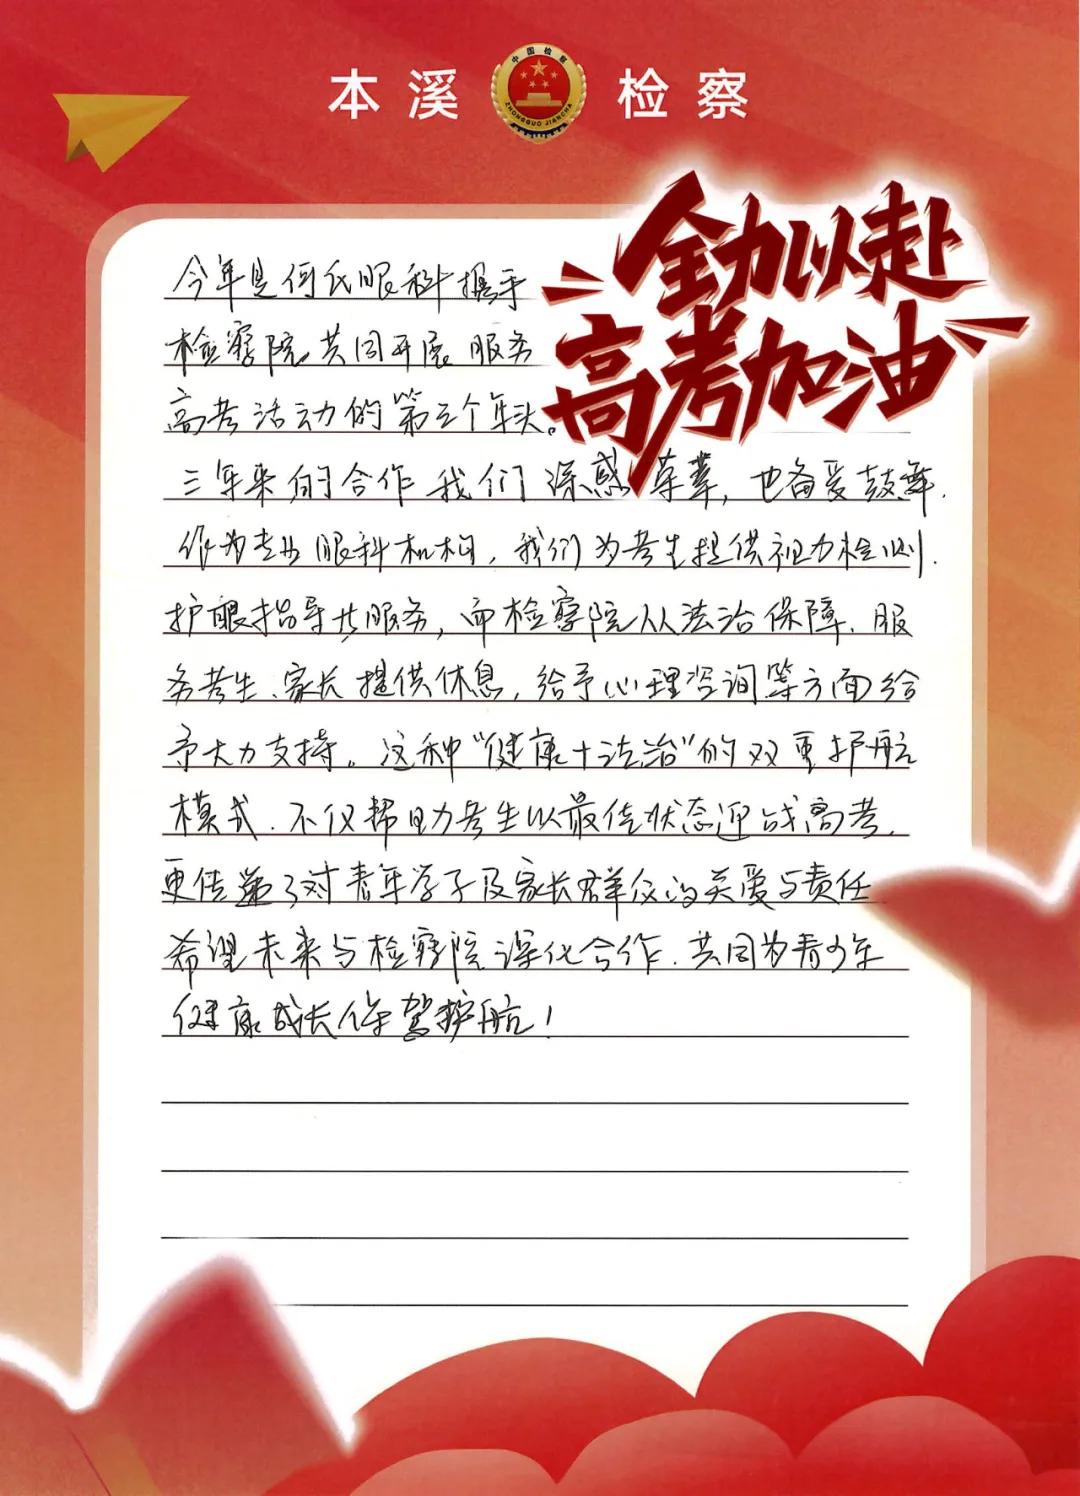 本溪 检察
中国检察
ZHONGGUO JIANCHA
全力以赴
高考加油
今年是何氏眼科携手
检察院共同开展服务
高考活动的第三个年头。
三年来的合作我们深感荣幸，也备受鼓舞.
作为专业眼科机构，我们为考生提供视力检测.
护眼指导共服务，而检察院从法治保障、服
务考生、家长提供休息，给予心理咨询等方面给
予大力支持。这种“健康+法治”的双重护航
模式.不仅帮助考生以最佳状态迎战高考.
更传递了对青年学子及家长群众的关爱与责任
希望未来与检察院深化合作.共同为青少年
健康成长保驾护航！